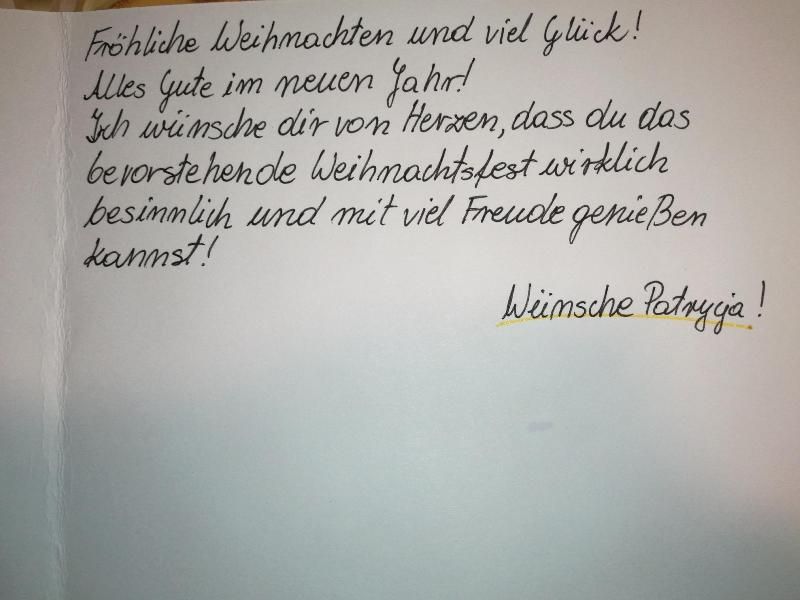 Fröhliche Weihnachten und viel Glück!
Alles Gute im neuen Jahr!
Ich wünsche dir von Herzen, dass du das
bevorstehende Weihnachtsfest wirklich
besinnlich und mit viel Freude genießen
kannst!
Wünsche Patrycja!